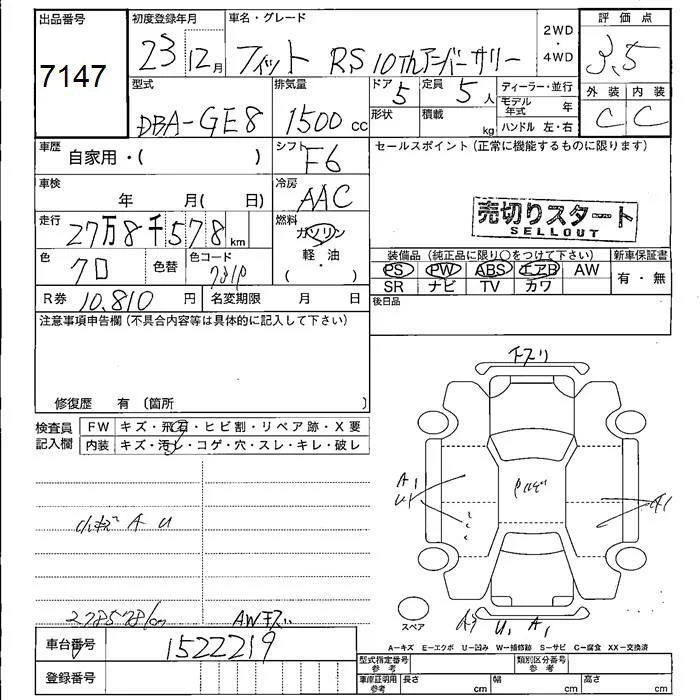 出品番号 初度登録年月 車名・グレード 2WD・4WD 評価点
7147 23 12月 フィット RS 10thアニバーサリー 3.5
型式 排気量 ドア 5 定員 5人 ディーラー・並行 外装 内装
DBA-GE8 1500cc 形状 積載 kg モデル年式 年 C C
ハンドル 左・右
車歴 自家用・( ) シフト F6 セールスポイント(正常に機能するものに限ります)
車検 年 月( 日) 冷房 AAC
売切りスタート
SELLOUT
走行 27万8千578km 燃料 ガソリン
軽・油
・
( )
装備品(純正品に限り○をつけて下さい) 新車保証書
色 クロ 色替 色コード PS PW ABS エアB AW 有・無
SR ナビ TV カワ
R券 10,810円 名変期限 月 日 後日品
注意事項申告欄(不具合内容等は具体的に記入して下さい)
修復歴 有〔箇所 〕
検査員記入欄 FW キズ・飛石・ヒビ割・リペア跡・X要
内装 キズ・汚レ・コゲ・穴・スレ・キレ・破レ
A1
U1
A1
A U
278578km AWキズ
スペア U1 A1
A-キズ E-エクボ U-凹み W-補修跡 S-サビ C-腐食 XX-交換済
車台番号 1522219
登録番号
型式指定番号 参考 類別区分番号 参考
車庫証明用 参考 長さ cm 幅 cm 高さ cm